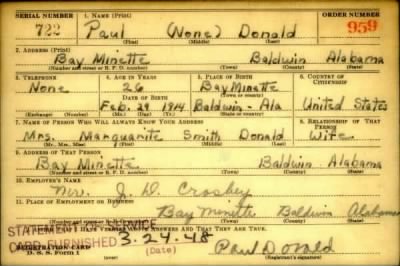 SERIAL NUMBER 1. NAME (Print) ORDER NUMBER
722 Paul (None) Donald 959
(First) (Middle) (Last)
2. ADDRESS (Print)
Bay Minette Baldwin Alabama
(Number and street or R. F. D. number) (Town) (County) (State)
3. TELEPHONE 4. AGE IN YEARS 5. PLACE OF BIRTH 6. COUNTRY OF CITIZENSHIP
None 26 Bay Minette
DATE OF BIRTH (Town or county)
Feb. 29 1914 Baldwin - Ala United States
(Exchange) (Number) (Mo.) (Day) (Yr.) (State or country)
7. NAME OF PERSON WHO WILL ALWAYS KNOW YOUR ADDRESS 8. RELATIONSHIP OF THAT PERSON
Mrs. Marguarite Smith Donald Wife
(Mr., Mrs., Miss) (First) (Middle) (Last)
9. ADDRESS OF THAT PERSON
Bay Minette Baldwin Alabama
(Number and street or R. F. D. number) (Town) (County) (State)
10. EMPLOYER'S NAME
J. D. Crosby
11. PLACE OF EMPLOYMENT OR BUSINESS
Bay Minette Baldwin Alabama
(Number and street or R. F. D. number) (Town) (County) (State)
I HAVE VERIFIED ABOVE ANSWERS AND THAT THEY ARE TRUE.
STATEMENT OF SERVICE
CARD FURNISHED 3-24-48
REGISTRATION CARD (Date) Paul Donald
D. S. S. Form 1 (Registrant's signature)